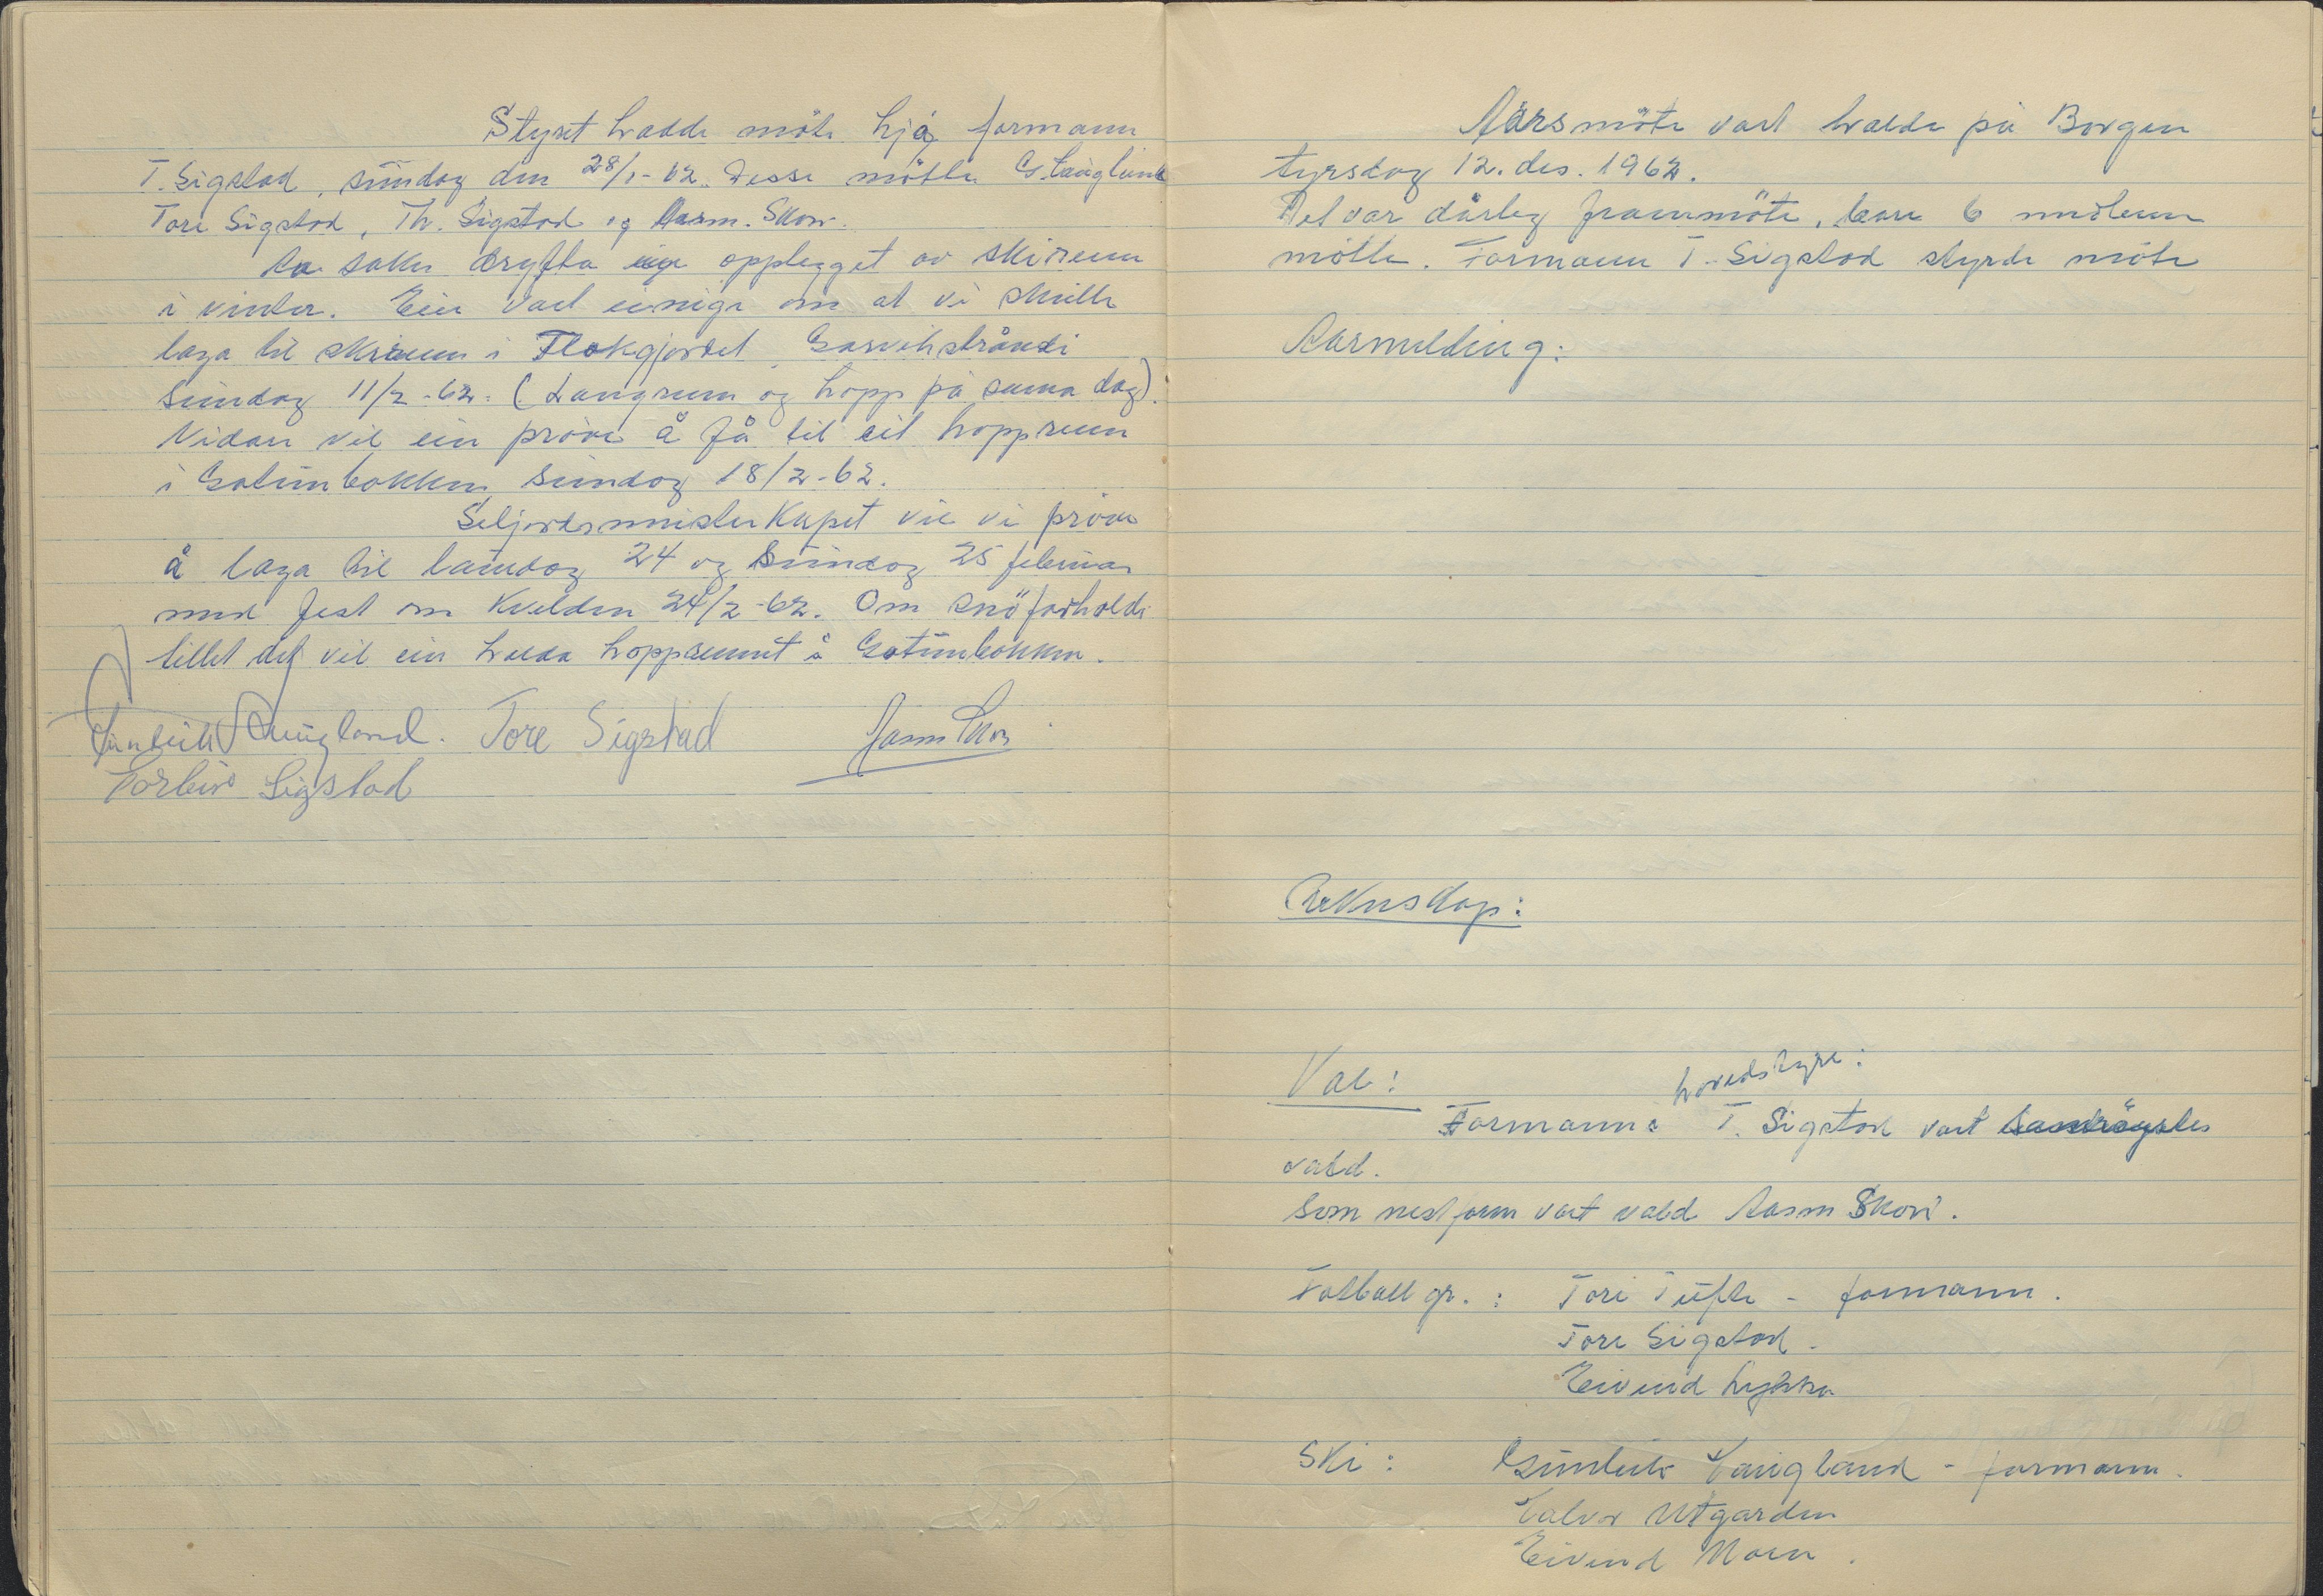 Styret hadde møte hjå formann
T. Sigstad, sundag den 28/1-62. Desse møtte G. Lauglund
Tore Sigstad, Th. Sigstad og Aasm. Skori.
Av saker drøfta ein opplegget av skirenn
i vinter. Ein vart einige om at vi skulle
laga til skirenn i Flekgjordet
sundag 11/2-62. (Langrenn og hopp på sama dag).
Vidare vil ein prøve å få til eit hopprenn
i Gøtunbakken sundag 18/2-62.
Seljordsmeisterkapet vil vi prøve
å laga til laurdag 24 og sundag 25 februar
med fest om kvelden 24/2-62. Om snöforholdi
tillet det vil ein halda hopprennet i Gøtunbakken.
Gunleik Laugland. Tore Sigstad Aasm Skori
Torleiv Sigstad
Aarsmöte vart halde på Borgen
tyrsdag 12. des. 1962.
Det var dårleg frammöte, bare 6 medlemm
møtte. Formann T. Sigstad styrde møte
Aarsmelding:
Rekneskap:
Val: hovedstyre:
Formann: T. Sigstad vart
vald.
Som nestform vart vald Aasm Skori.
Fotball gr.: Tore Tufte - formann.
Tore Sigstad.
Eivind Lykkja
Ski: Gunleik Laugland - formann.
Halvor Utgarden
Eivind Moen.